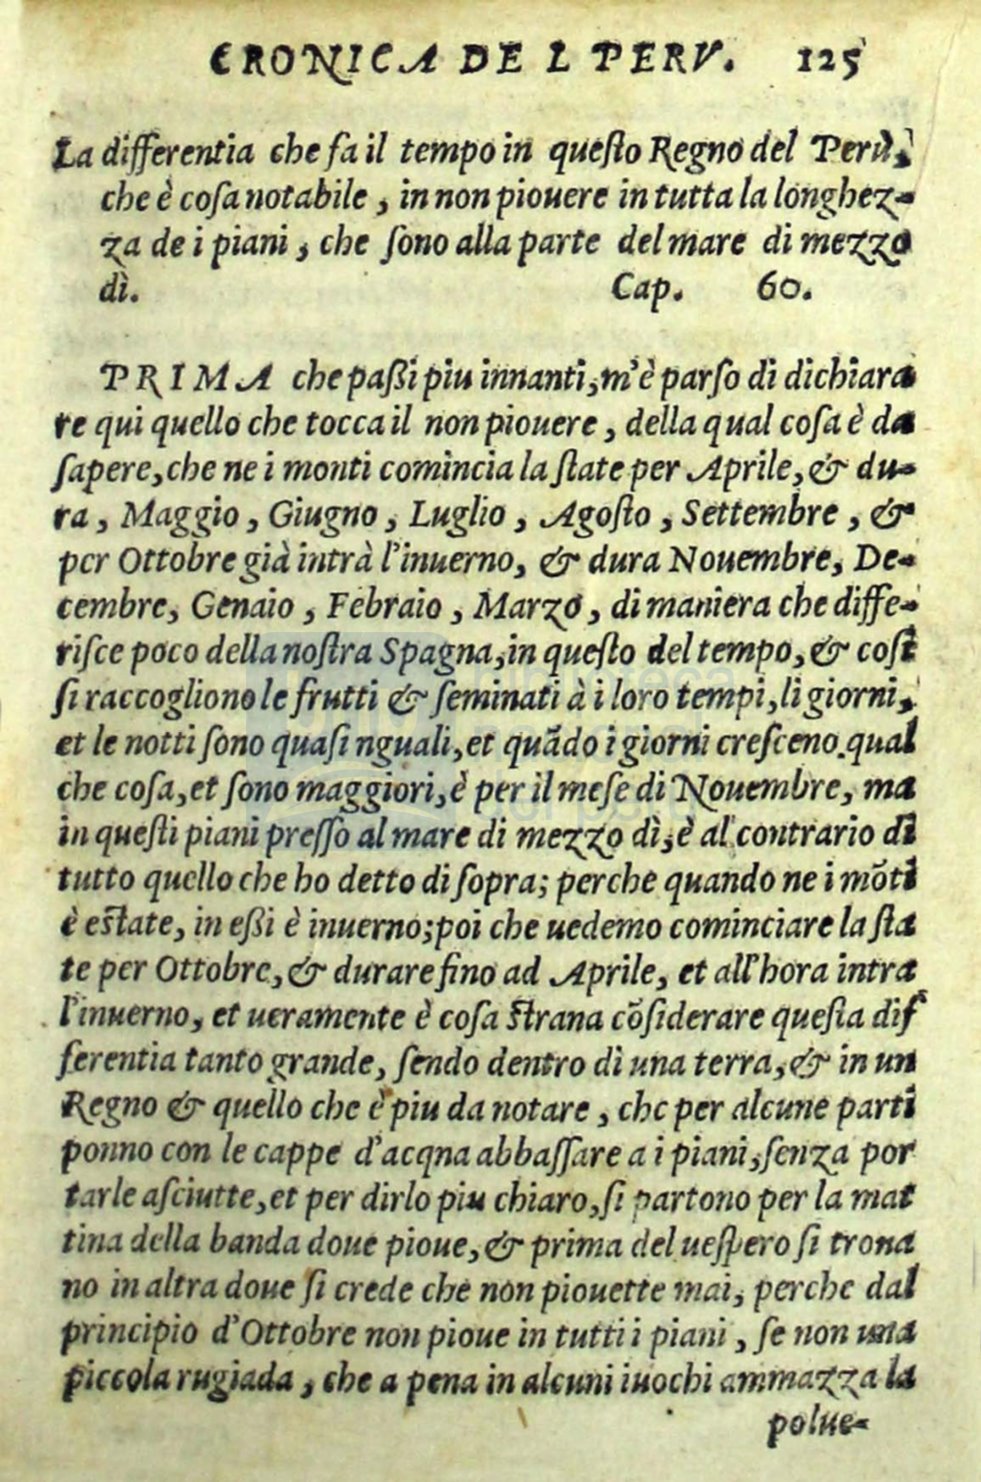 CRONICA DE L PERV. 125
La differentia che fa il tempo in questo Regno del Perù,
che è cosa notabile, in non piouere in tutta la longhez-
za de i piani, che sono alla parte del mare di mezzo
dì. Cap. 60.
PRIMA che paßi piu innanti, m'è parso di dichiara
re qui quello che tocca il non piouere, della qual cosa è da
sapere, che ne i monti comincia la state per Aprile, & du-
ra, Maggio, Giugno, Luglio, Agosto, Settembre, &
per Ottobre già intrà l'inuerno, & dura Nouembre, De-
cembre, Genaio, Febraio, Marzo, di maniera che diffe-
risce poco della nostra Spagna, in questo del tempo, & così
si raccogliono le frutti & seminati à i loro tempi, li giorni,
et le notti sono quasi nguali, et quãdo i giorni cresceno qual
che cosa, et sono maggiori, è per il mese di Nouembre, ma
in questi piani presso al mare di mezzo dì, è al contrario di
tutto quello che ho detto di sopra; perche quando ne i mõti
è estate, in eßi è inuerno; poi che uedemo cominciare la sta
te per Ottobre, & durare fino ad Aprile, et all'hora intra
l'inuerno, et ueramente è cosa strana cõsiderare questa dif
ferentia tanto grande, sendo dentro di una terra, & in un
Regno & quello che è piu da notare, che per alcune parti
ponno con le cappe d'acqna abbassare a i piani, senza por
tarle asciutte, et per dirlo piu chiaro, si partono per la mat
tina della banda doue pioue, & prima del uespero si troua
no in altra doue si crede che non piouette mai, perche dal
principio d'Ottobre non pioue in tutti i piani, se non una
piccola rugiada, che a pena in alcuni iuochi ammazza la
polue-